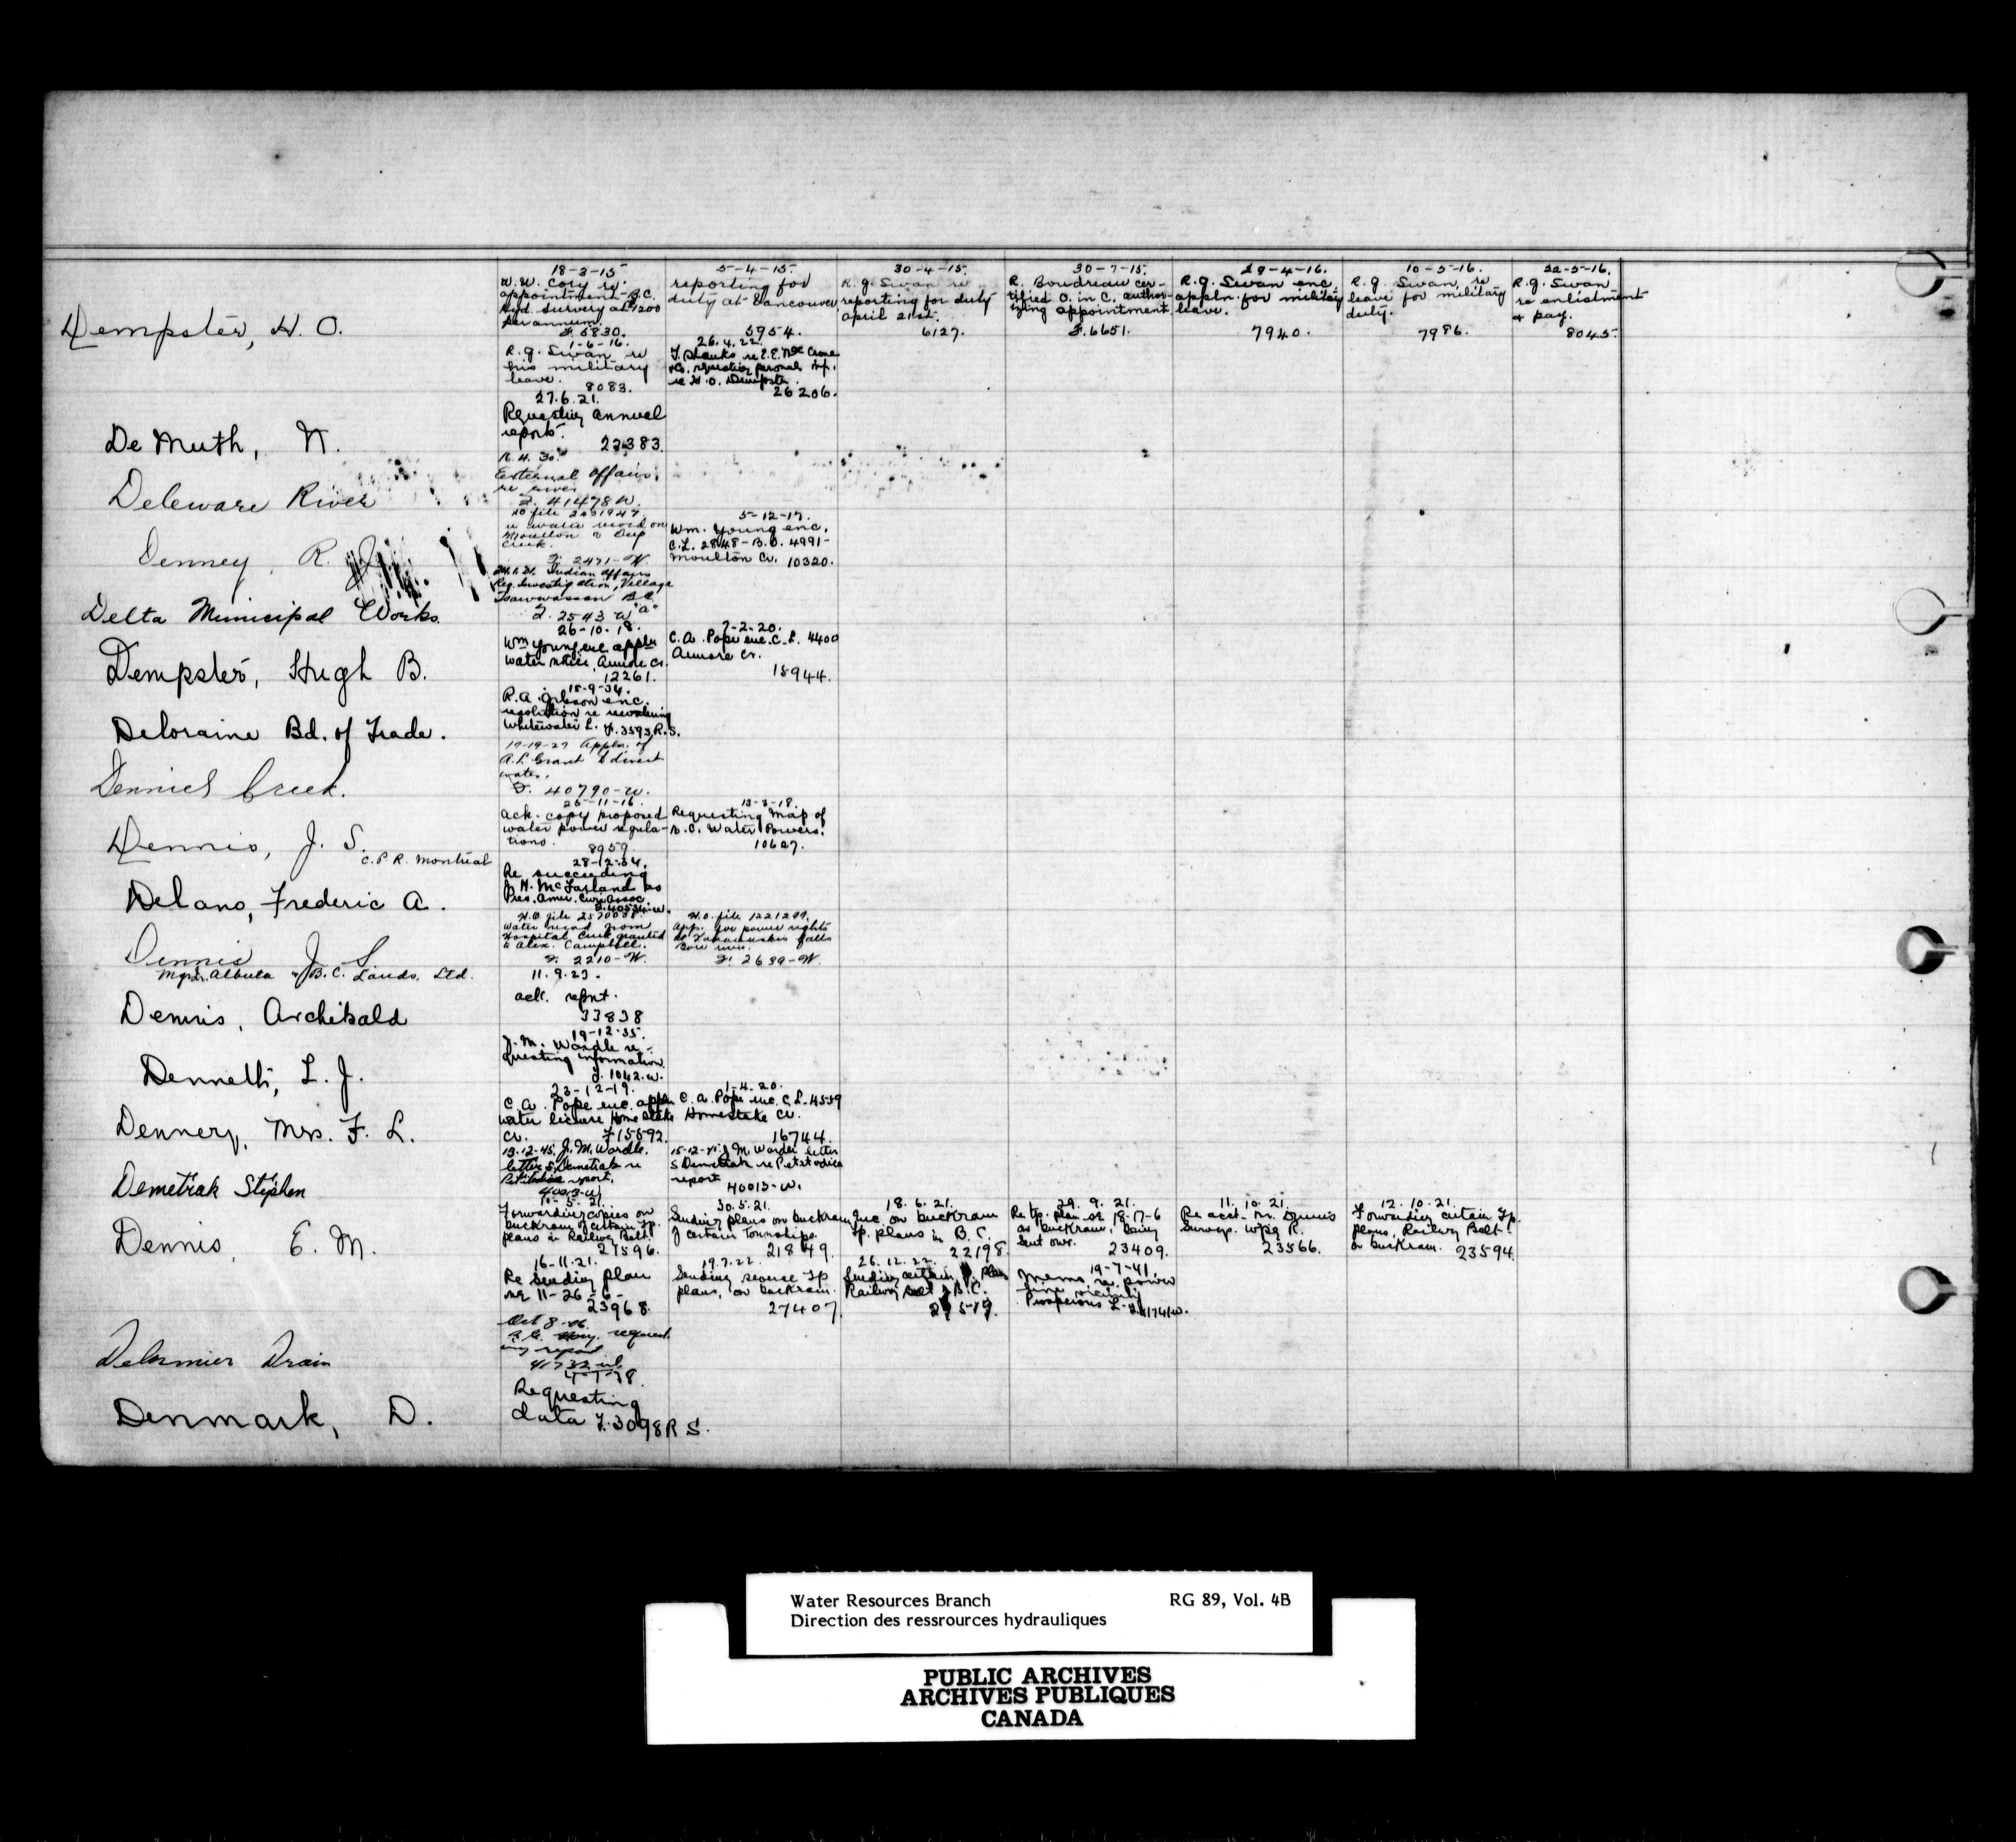 Dempster, H. O.
18-3-15
W. W. Cory re
appointment B.C.
Hyd. Survey at 1200
per annum.
F. 5830.
5-4-15.
reporting for
duty at Vancouver
5954.
30-4-15.
R. G. Swan re
reporting for duty
April 21st.
6127.
30-7-15.
R. Boudreau cer-
tified O. in C. author-
izing appointment
F. 6651.
29-4-16.
R. G. Swan enc.
appln. for military
leave.
7940.
10-5-16.
R. G. Swan, re
leave for military
duty.
7986.
22-5-16.
R. G. Swan
re enlistment
+ pay.
8045.
1-6-16.
R. G. Swan re
his military
leave.
8083.
26.4.22.
re H. O. Dempster.
26206.
De Muth, N.
27.6.21.
Requesting annual
reports.
22383.
Deleware River
16.4.30.
External Affairs,
re river
F. 41478 W.
Denney, R.
re water record on
Moulton & Deep
Creek.
F. 2471-W.
5-12-17.
Wm. Young enc.
C.L. 2848-B.C. 4991-
Moulton Cr. 10320.
Delta Municipal Works.
Indian Affairs
Reg. Investigation, Village
Tsawwassen B.C.
F. 2543 W "a"
Dempster, Hugh B.
26-10-18.
Wm Young enc appln
water notice, Anmore Cr.
12261.
7-2-20.
C. A. Pope enc. C. L. 4400
Anmore Cr.
15944.
Deloraine Bd. of Trade.
15-9-34.
R. A. Gibson enc.
resolution re
Whitewater L. F. 3593 R.S.
Dennies Creek.
Appln. of
A. L. Grant to divert
water.
F. 40790-W.
Dennis, J. S.
C. P. R. Montreal
25-11-16.
Ack. copy proposed
water power regula-
tions.
8959.
13-3-18.
Requesting Map of
B.C. Water Powers.
10627.
Delano, Frederic A.
28-12-34.
Re succeeding
J. H. McFarland as
Pres. Amer. Civic Assoc.
Dennis J S
B.C. Lands, Ltd.
Water record from
Hospital Creek granted
to Alex. Campbell.
F. 2210-W.
H.O. file 1221279.
App. for power rights
Bow river.
F. 2639-W.
Dennis, Archibald
11.9.23.
ack. reprt.
33838
Dennett, L. J.
19-12-35.
J. M. Wardle re-
questing information
F. 1042-W.
Dennery, Mrs. F. L.
23-12-19.
C. A. Pope enc. appln
water license Homestake
Cr.
F 15592.
1-4-20.
C. A. Pope enc. C. L. 4559
Homestake Cr.
16744.
Demetrak Stephen
13-12-45. J. M. Wardle,
letter S. Demetrak re
report.
40013-W
J. M. Wardle letter
S Demetrak re
report
40013-W.
Dennis, E. M.
10-5-21.
Forwarding copies on
buckram of certain Tp.
plans in Railway Belt.
21596.
30.5.21.
Sending plans on buckram
of certain Townships.
21849.
18.6.21.
Enc. on buckram
Tp. plans in B. C.
22198.
29.9.21.
Re Tp. plan of 18-17-6
on buckram, being
sent over.
23409.
11.10.21.
Re acct. Mr. Dennis
Surveys. Wpg R.
23566.
12.10.21.
Forwarding certain Tp.
plans, Railway Belt
on buckram. 23594.
16-11-21.
Re sending plan
11-26-6-
23968.
19.7.22.
Sending Tp
plans, on buckram.
27407.
26.12.22.
Sending certain plans
Railway Belt, B.C.
19-7-41.
Memo. re. power
line vicinity
Prosperous L.
Delormier Drain
Oct 8
request-
ing report
41732
Denmark, D.
Requesting
data F. 3098 R S.
Water Resources Branch RG 89, Vol. 4B
Direction des ressrources hydrauliques
PUBLIC ARCHIVES
ARCHIVES PUBLIQUES
CANADA